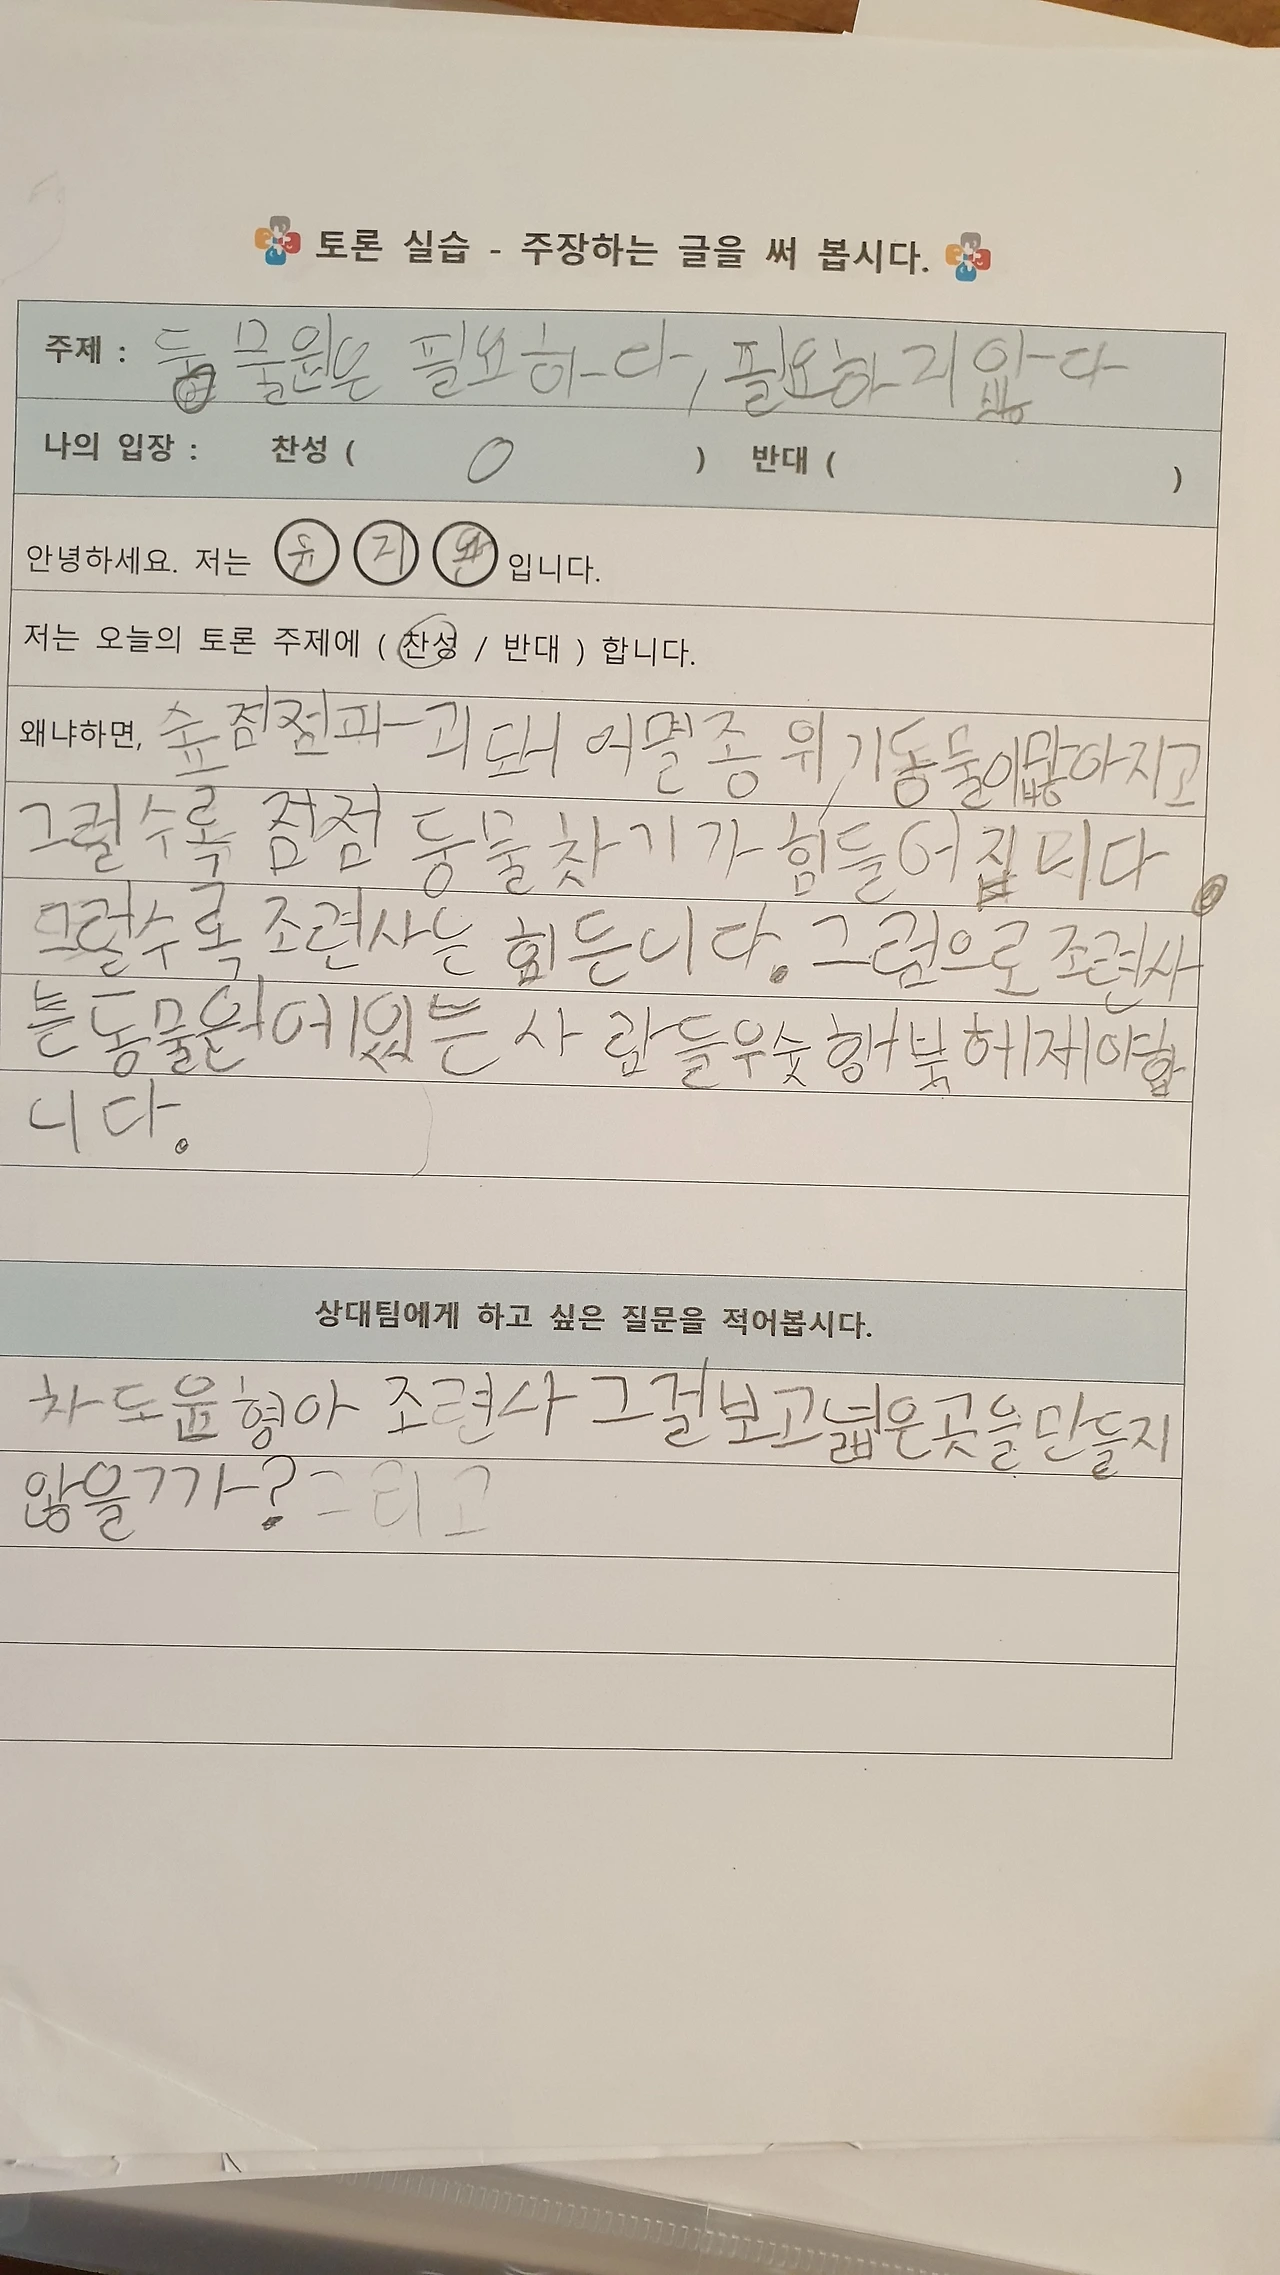 토론 실습 - 주장하는 글을 써 봅시다.
주제 : 동물원은 필요하다, 필요하지않다
나의 입장 : 찬성 ( O ) 반대 ( )
안녕하세요. 저는 유 지 입니다.
저는 오늘의 토론 주제에 ( 찬성 / 반대 ) 합니다.
왜냐하면, 숲점점파괴돼어멸종위기동물이많아지고
그럴수록 점점 동물찾기가 힘들어집니다
그럴수록 조련사는 힘든니다. 그럼으로 조련사
는동물원에있는 사람들우숯행북헤제야합
니다.
상대팀에게 하고 싶은 질문을 적어봅시다.
차도윤형아 조련사 그걸보고넓은곳을만들지
않을ㄱ가? 그리고